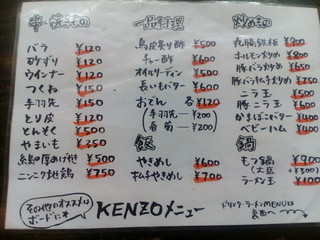 串焼きもの
バラ ¥120
砂ずり ¥120
ウインナー ¥120
つくね ¥150
手羽先 ¥150
とり皮 ¥120
とんそく ¥500
やまいも ¥350
絹の厚あげ焼き ¥500
ニンニク地鶏 ¥750
一品料理
鳥皮ぎり酢 ¥500
チャー酢 ¥600
オイルサーディン ¥500
長いもバター ¥600
おでん 各¥120
(手羽先 ¥200
春菊 ¥200)
飯
やきめし ¥600
キムチやきめし ¥700
炒めもの
丸腸鉄板 ¥900
ホルモン炒め ¥800
豚バラ炒め ¥650
豚バラキムチ炒め ¥750
ニラ玉 ¥500
豚ニラ玉 ¥600
かまぼこバター ¥400
ベビーハム ¥400
鍋
もつ鍋 ¥900
(大盛 +¥300)
ラーメン玉 ¥100
その他のオススメは
ボードに
KENZOメニュー
ドリンク・ラーメンMENUは
裏面へ